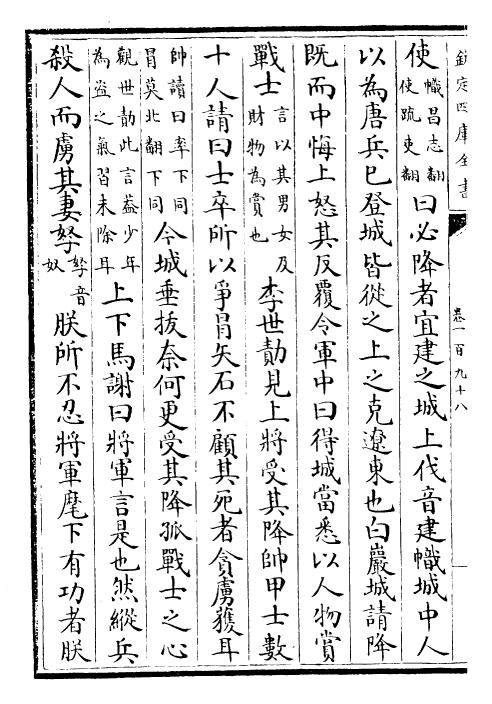 欽定四庫全書
卷一百九十八
使幟昌志翻使疏吏翻曰必降者宜建之城上伐音建幟城中人
以為唐兵巳登城皆從之上之克遼東也白巖城請降
既而中悔上怒其反覆令軍中曰得城當悉以人物賞
戰士言以其男女及財物為賞也李世勣見上將受其降帥甲士數
十人請曰士卒所以爭冒矢石不顧其死者貪虜獲耳
帥讀曰率下同冒莫北翻下同今城垂拔奈何更受其降孤戰士之心
觀世勣此言葢少年為盗之氣習未除耳上下馬謝曰將軍言是也然縱兵
殺人而虜其妻孥孥音奴朕所不忍將軍麾下有功者朕